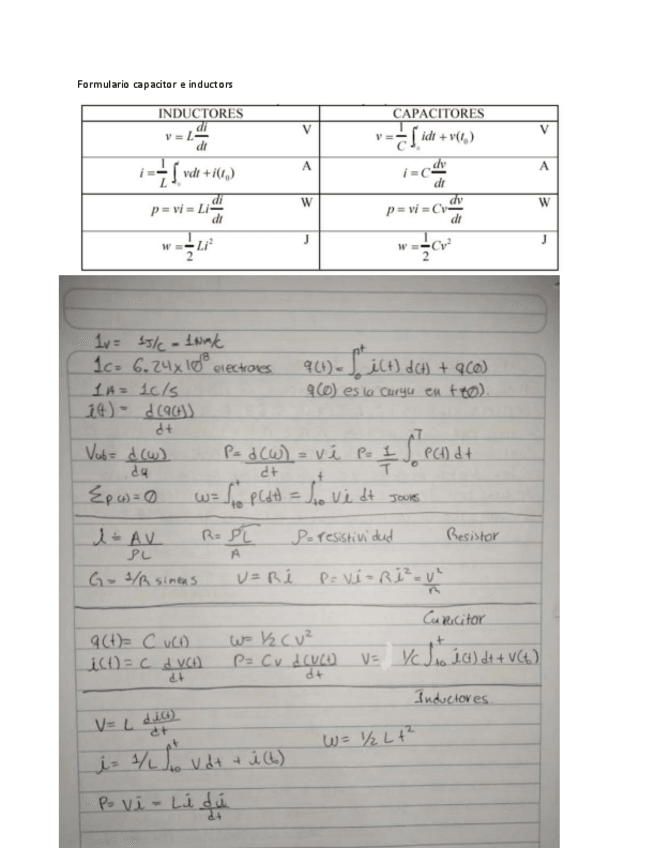 Formulario capacitor e inductors
INDUCTORES CAPACITORES
v = L di/dt V v = 1/C ∫ idt + v(t₀) V
i = 1/L ∫ vdt + i(t₀) A i = C dv/dt A
p = vi = Li di/dt W p = vi = Cv dv/dt W
w = 1/2 Li² J w = 1/2 Cv² J
1v = 1J/C = 1Nm/c
1C = 6.24x10¹⁸ electrones q(t) = ∫₀ᵗ i(t) d(t) + q(0)
1A = 1C/s q(0) es la carga en t=0).
i(t) = d(q(t))/dt
Vab = d(w)/dq P = d(w)/dt = vi P = 1/T ∫₀ᵀ P(t) dt
Σp(t) = 0 w = ∫t0ᵗ p(dt) = ∫t0ᵗ vi dt Joules
i = AV/ρL R = ρL/A ρ = resistividad Resistor
G = 1/R simens V = Ri P = Vi = Ri² = V²/R
Capicitor
q(t) = C v(t) w = ½ C v²
i(t) = C d v(t)/dt P = Cv d(v(t)/dt V = 1/C ∫t0ᵗ i(t) dt + V(t₀)
Inductores
V = L di(t)/dt
w = ½ L t²
i = 1/L ∫t0ᵗ V dt + i(t₀)
P = Vi = Li di/dt